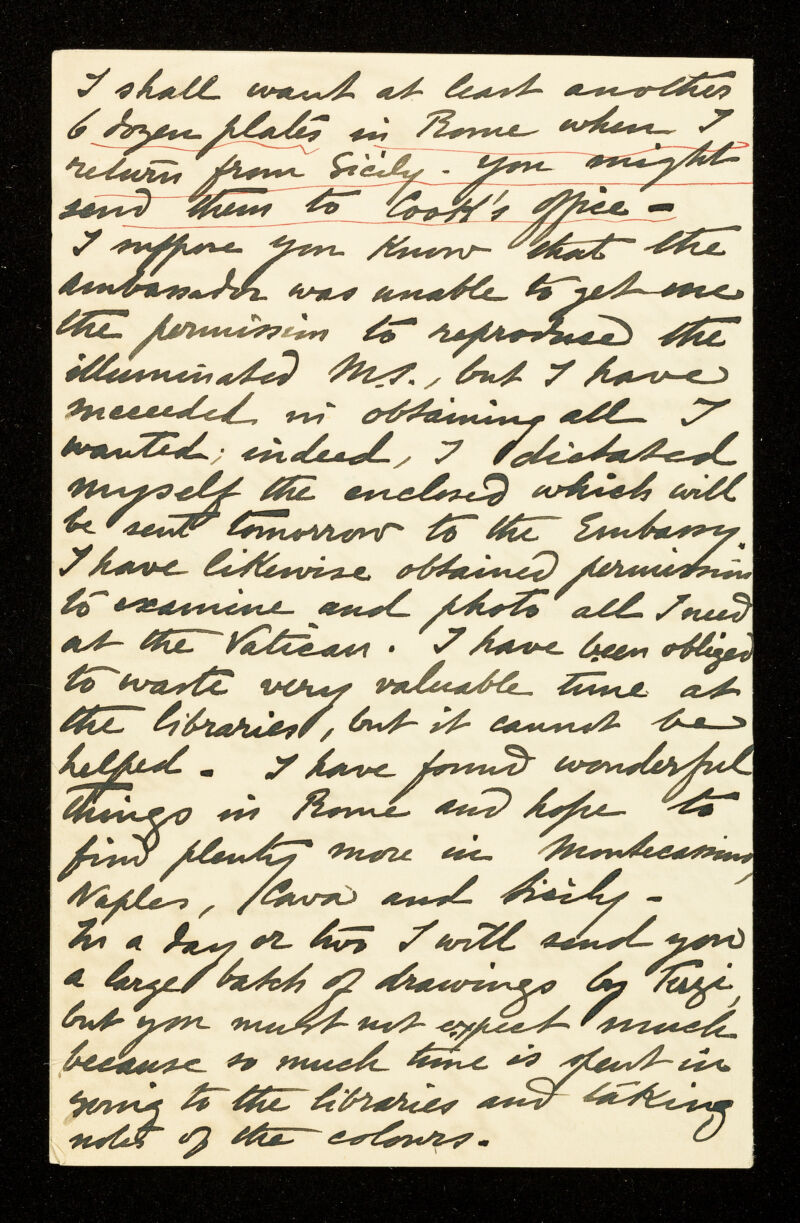 I shall want at least another
6 dozen plates in Rome when I
return from Sicily. You might
send them to Cook's office –
I suppose you know that the
ambassador was unable to get me
the permission to reproduce the
illuminated M.S., but I have
succeeded in obtaining all I
wanted; indeed, I dictated
myself the enclosed which will
be sent tomorrow to the Embassy.
I have likewise obtained permission
to examine and photo all I need
at the Vatican. I have been obliged
to waste very valuable time at
the libraries, but it cannot be
helped – I have found wonderful
things in Rome and hope to
find plenty more in Montecassino,
Naples, Cava and Sicily –
In a day or two I will send you
a large batch of drawings by Terzi,
but you must not expect much
because so much time is spent in
going to the libraries and taking
notes of the colours.